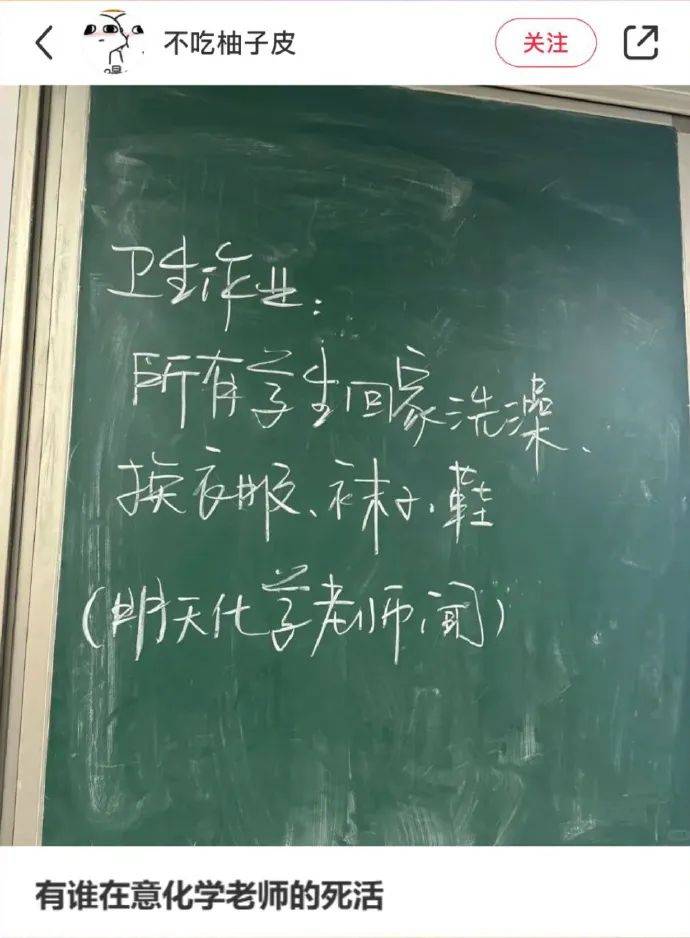 不吃柚子皮
关注
卫生作业：
所有学生回家洗澡、
换衣服、袜子、鞋
(明天化学老师闻)
有谁在意化学老师的死活